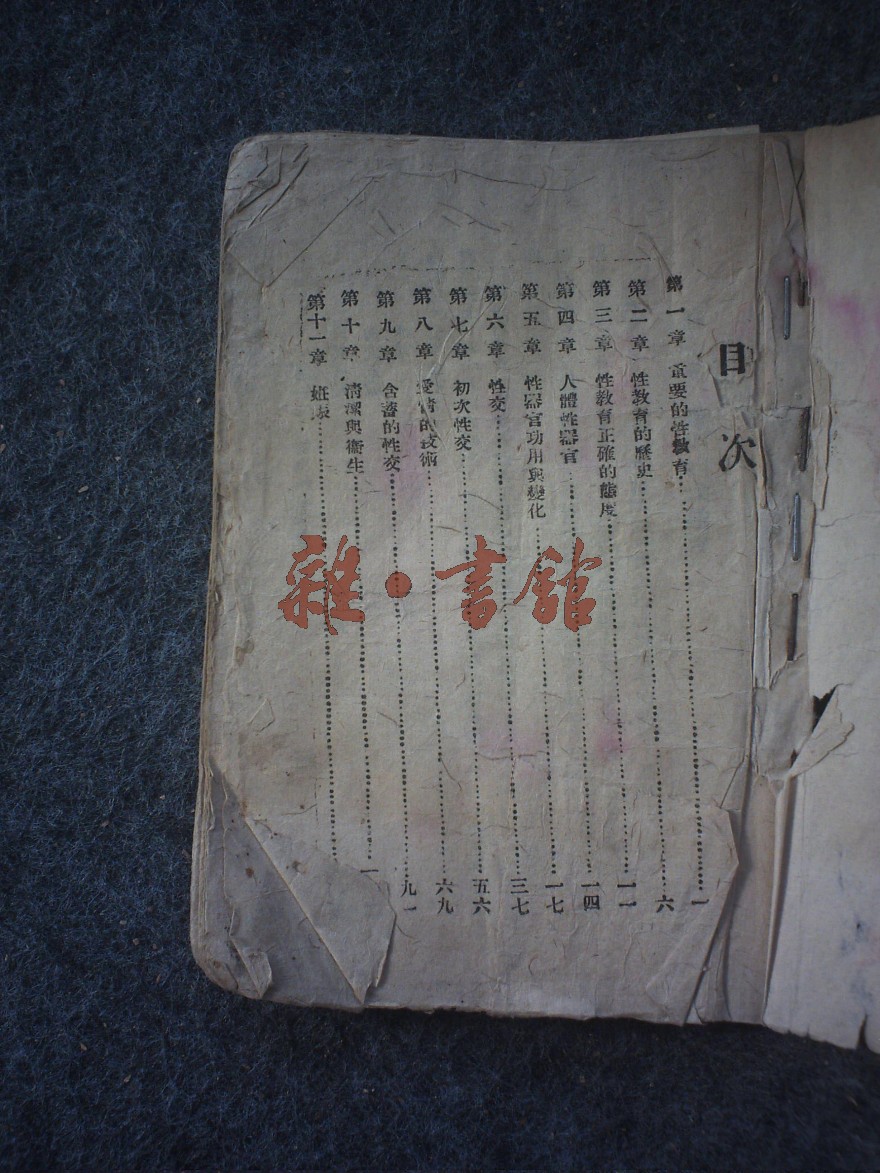 目次
第一章 重要的性教育……一
第二章 性教育的歷史……六
第三章 性教育正確的態度……一一
第四章 人體性器官……一四
第五章 性器官功用與變化……一七
第六章 性交……三七
第七章 初次性交……五六
第八章 愛情的技術……六九
第九章 含蓄的性交……九一
第十章 清潔與衞生……一
第十一章 妊娠……
雜·書館